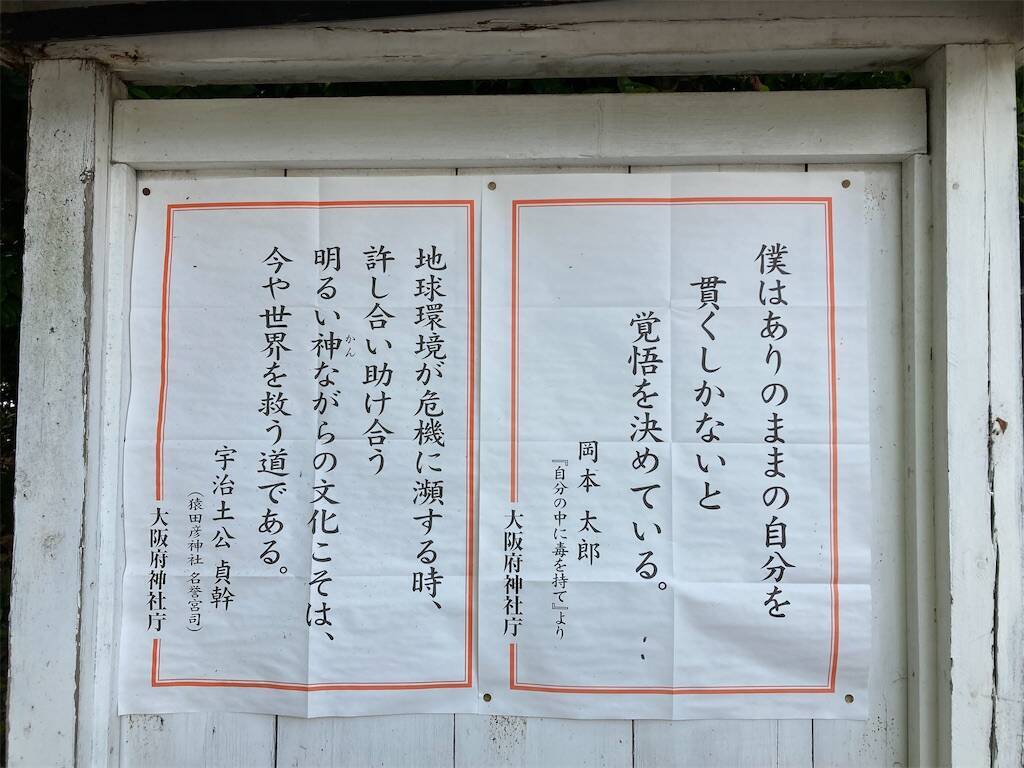 僕はありのままの自分を
貫くしかないと
覚悟を決めている。
岡本 太郎
『自分の中に毒を持て』より
大阪府神社庁
地球環境が危機に瀕する時、
許し合い助け合う
明るい神ながらの文化こそは、
かん
今や世界を救う道である。
宇治土公 貞幹
(猿田彦神社 名誉宮司)
大阪府神社庁